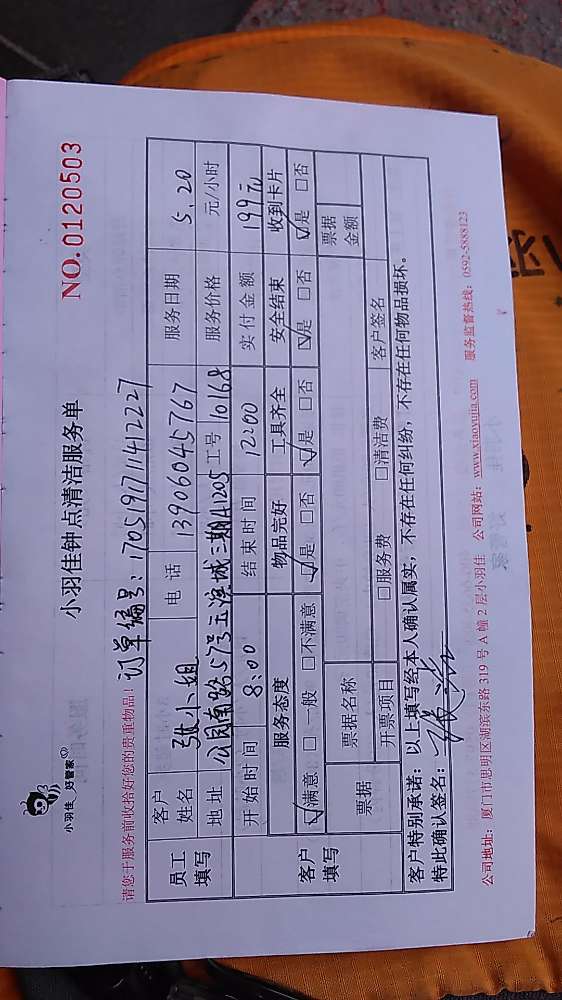 小羽佳 好管家
小羽佳钟点清洁服务单
NO.0120503
请您于服务前收拾好您的贵重物品!
订单编号:17051971141 2227
员工填写 客户姓名 张小姐 电话 13906045767 服务日期 5.20
地址 公园南路57号玉滨城三期 1205 工号 10168 服务价格 元/小时
开始时间 8:00 结束时间 12:00 实付金额 199元
客户填写 服务态度 物品完好 工具齐全 安全结束 收到卡片
☑满意 □一般 □不满意 ☑是 □否 ☑是 □否 ☑是 □否 ☑是 □否
票据 票据名称 票据金额
开票项目 □服务费 □清洁费 客户签名
客户特别承诺:以上填写经本人确认属实,不存在任何纠纷,不存在任何物品损坏。
特此确认签名:
公司地址:厦门市思明区湖滨东路319号A幢2层小羽佳 公司网站:www.xiaoyujia.com 服务监督热线:0592-5888123